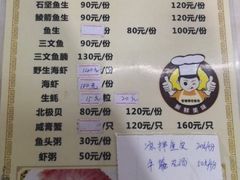 石垩鱼生 90元/份 100元/份
鲮箭鱼生 90元/份 120元/份
鱼生 80元/份 100元/份
三文鱼 90元/份
三文鱼腩 130元/份
野生海虾
海虾
生蚝 15 粒 20元
北极贝 80元/份 120元/份
咸膏蟹 120元/只 160元/只
鱼头粥 30元/份
虾粥 50元/份
凉拌鱼皮 20元/份